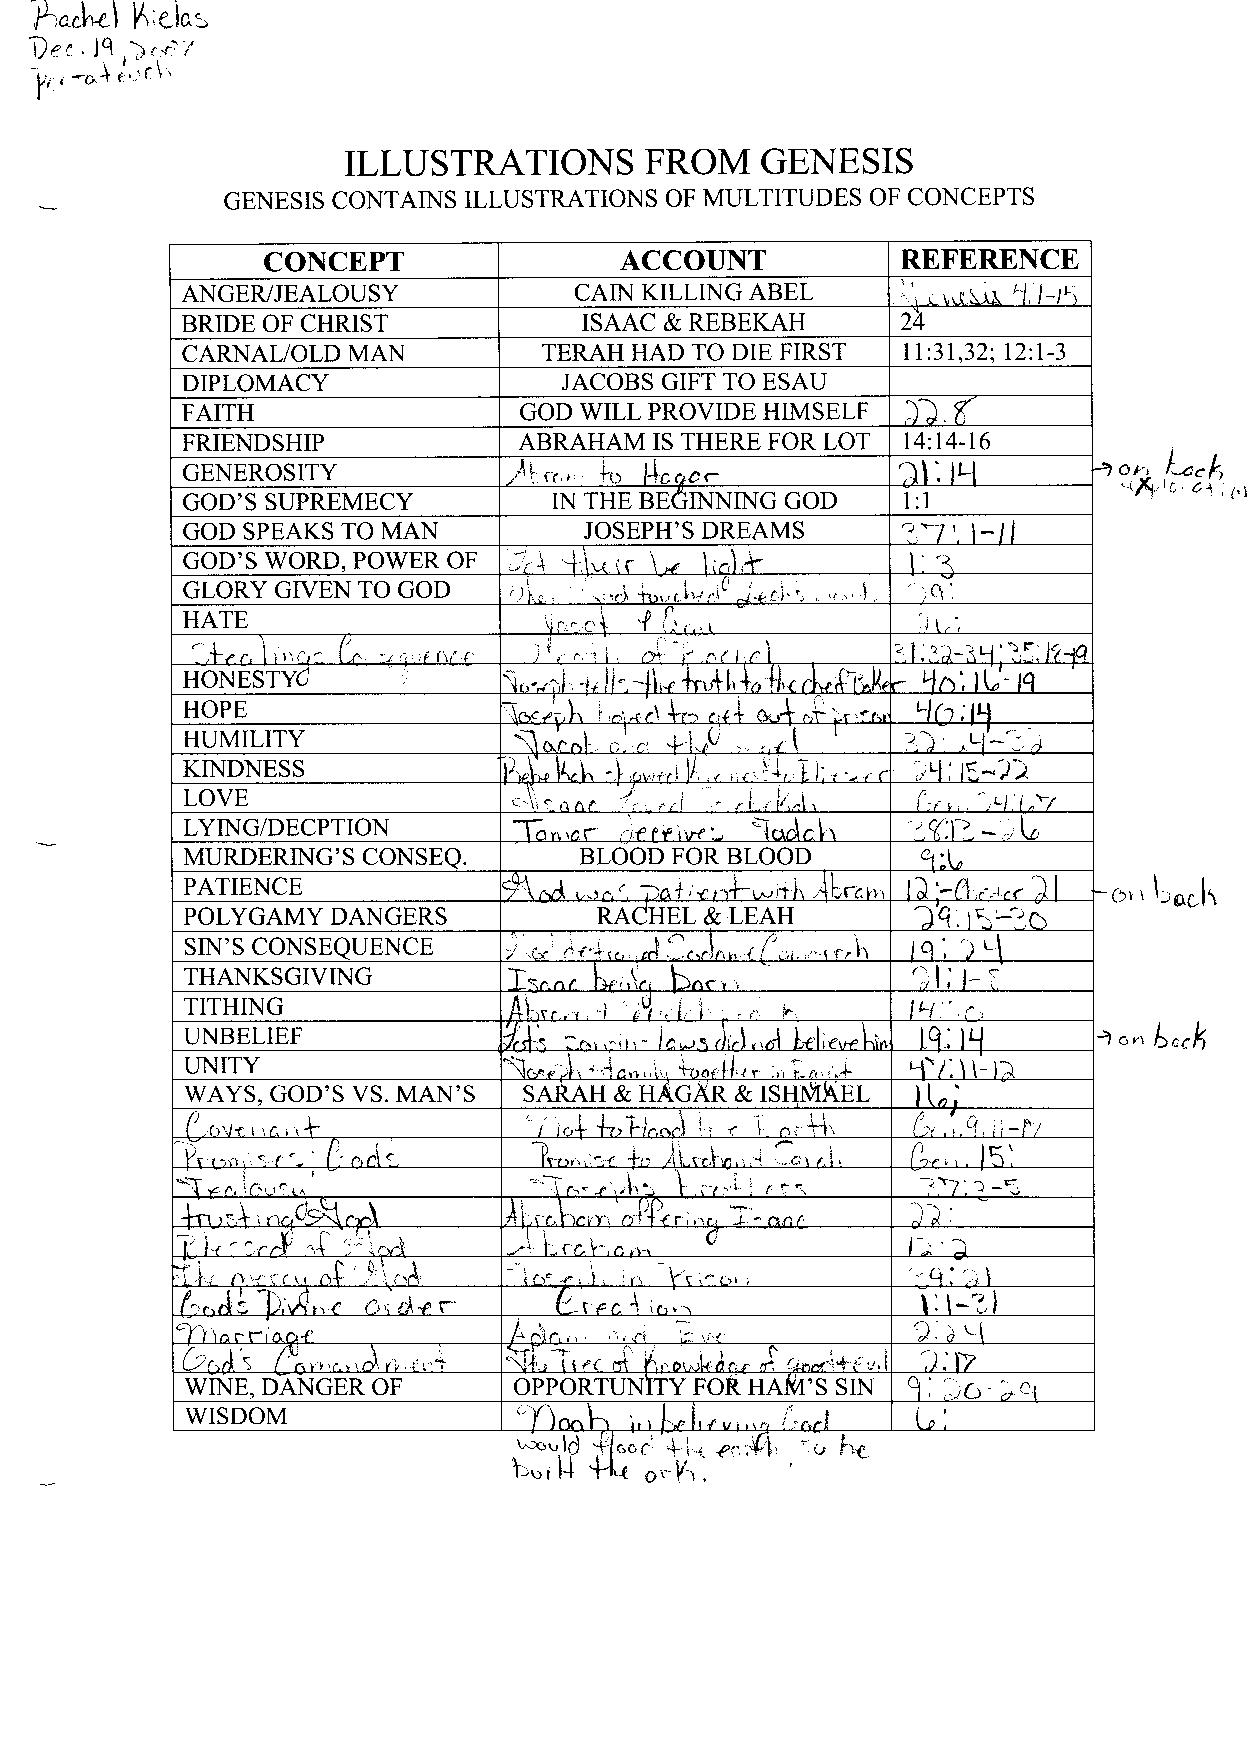 Rachel Kielas
Dec. 19, 2007
ILLUSTRATIONS FROM GENESIS
GENESIS CONTAINS ILLUSTRATIONS OF MULTITUDES OF CONCEPTS
CONCEPT ACCOUNT REFERENCE
ANGER/JEALOUSY CAIN KILLING ABEL Genesis 4:1-15
BRIDE OF CHRIST ISAAC & REBEKAH 24
CARNAL/OLD MAN TERAH HAD TO DIE FIRST 11:31,32; 12:1-3
DIPLOMACY JACOBS GIFT TO ESAU
FAITH GOD WILL PROVIDE HIMSELF 22:8
FRIENDSHIP ABRAHAM IS THERE FOR LOT 14:14-16
GENEROSITY Abram to Hagar 21:14 → on back explanation
GOD'S SUPREMECY IN THE BEGINNING GOD 1:1
GOD SPEAKS TO MAN JOSEPH'S DREAMS 37:1-11
GOD'S WORD, POWER OF Let their be light 1:3
GLORY GIVEN TO GOD When God touched
HATE Jacob & Esau
Stealings Consequence Death of Rachel 31:32-34; 35:18-19
HONESTY Joseph tells the truth to the chef Baker 40:16-19
HOPE Joseph hoped to get out of prison 40:14
HUMILITY Jacob and the angel
KINDNESS Rebekah showed kindness to Eliezer 24:15-22
LOVE Isaac loved Rebekah Gen. 24:67
LYING/DECPTION Tamar deceives Judah 38:13-26
MURDERING'S CONSEQ. BLOOD FOR BLOOD 9:6
PATIENCE God was patient with Abram 12:- 21 - on back
POLYGAMY DANGERS RACHEL & LEAH 29:15-30
SIN'S CONSEQUENCE God destroyed Sodam & Gommorah 19:24
THANKSGIVING Isaac being born 21:1-
TITHING Abram
UNBELIEF Lots son-in-laws did not believe him 19:14 → on back
UNITY Joseph + family together in Egypt 47:11-12
WAYS, GOD'S VS. MAN'S SARAH & HAGAR & ISHMAEL 16:
Covenant Not to flood the Earth Gen. 9:11-17
Promises; Gods Promise to Abraham + Sarah Gen. 15:
Jealousy Joseph's brothers 37:2-5
trusting God Abraham offering Isaac 22:
Blessed of God Abraham 12:2
The mercy of God Joseph in Prison 39:21
God's Divine order Creation 1:1-31
Marriage Adam and Eve 2:24
God's Comandment The Tree of Knowledge of good + evil 2:17
WINE, DANGER OF OPPORTUNITY FOR HAM'S SIN 9:20-29
WISDOM Noah in believing God 6:
would flood the earth so he
built the ark.